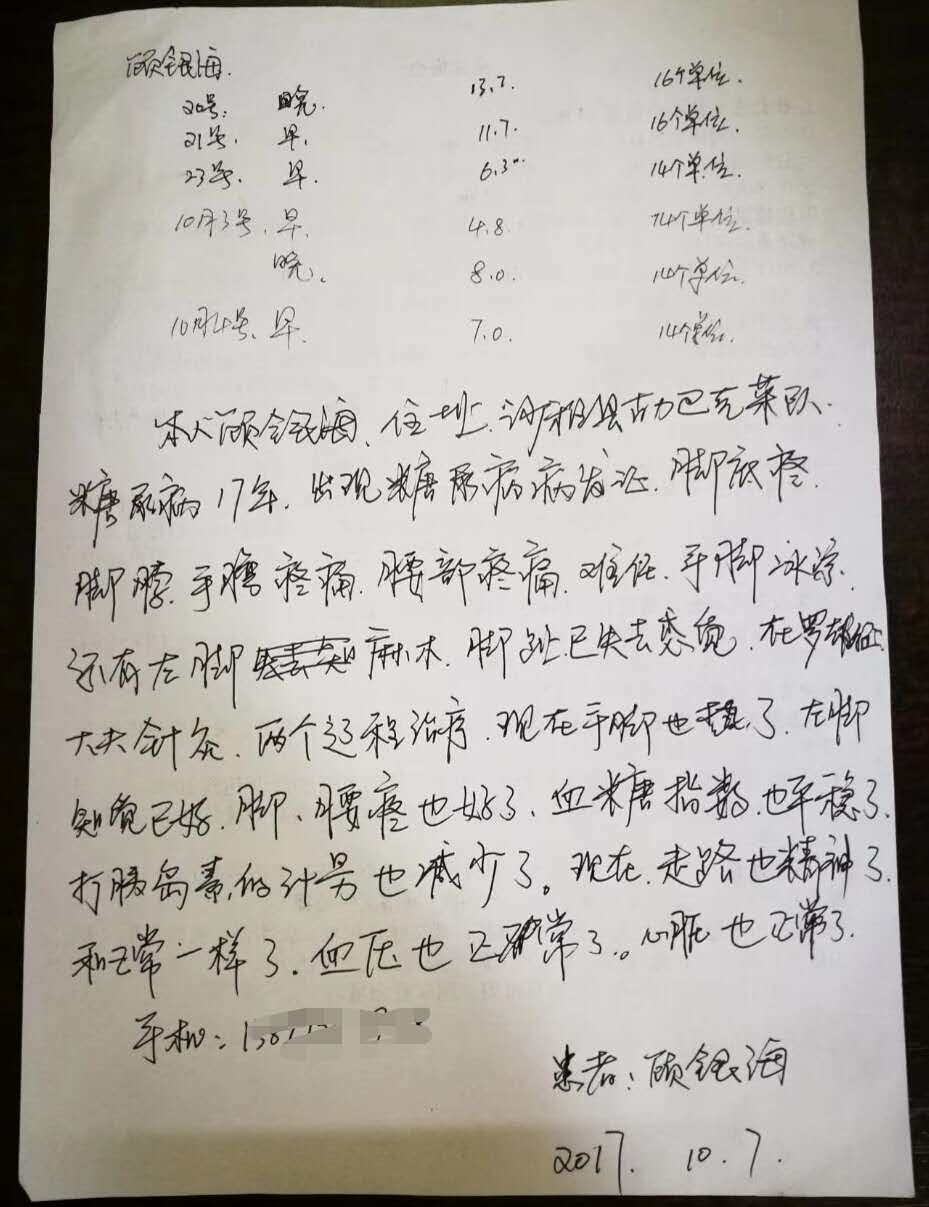 顾银海.
20号: 晚. 13.7. 16个单位.
21号. 早. 11.7. 16个单位.
23号. 早. 6.3 14个单位.
10月3号. 早. 4.8. 14个单位.
晚. 8.0. 14个单位.
10月4号. 早. 7.0. 14个单位.
本人顾银海. 住址. 县古力巴克菜队.
糖尿病17年. 出现糖尿病病发证. 脚底疼.
脚 手 疼痛. 腰部疼痛. 难任. 手脚冰凉.
还有左脚 麻木. 脚趾已失去感觉. 在罗
大夫针灸. 两个过程治疗. 现在手脚也 了. 左脚
知觉已好. 脚、腰疼也好了. 血糖指数也平稳了.
打胰岛素的计另也减少了。现在. 走路也精神了.
和正常一样了. 血压也正常了。心脏也正常了.
手机:
患者: 顾银海
2017. 10. 7.